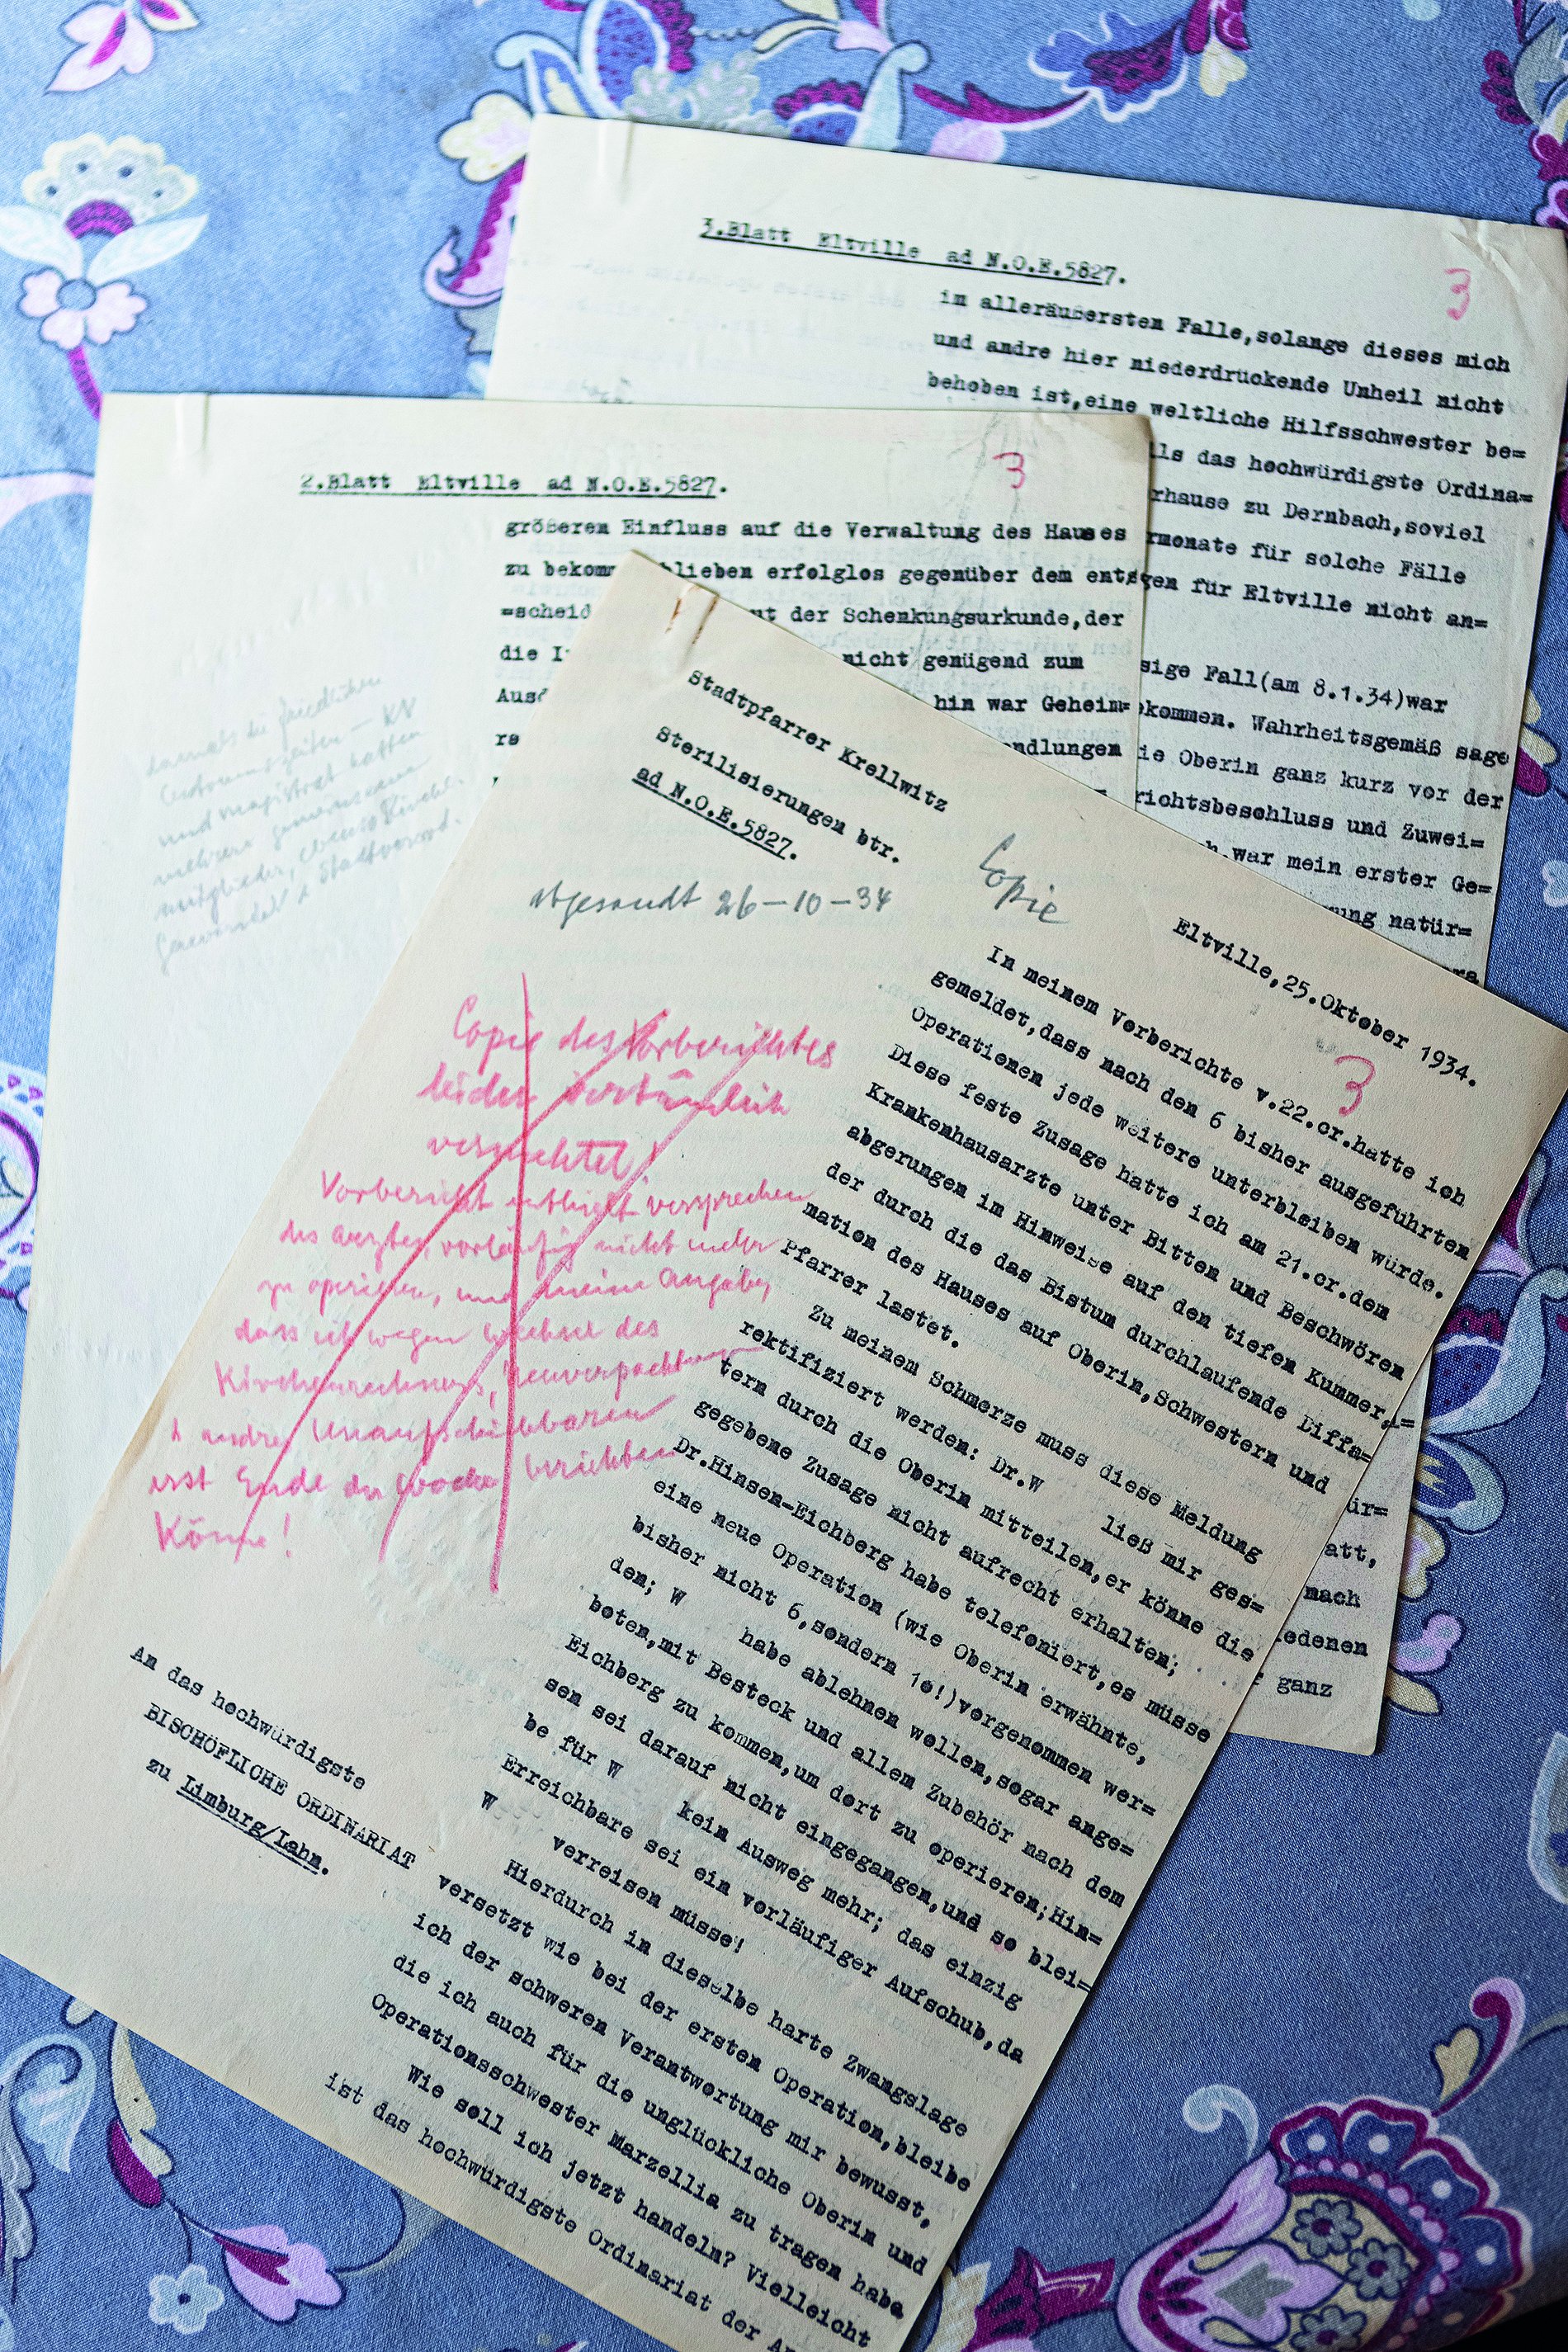 3.Blatt Eltville ad N.O.E.5827.
3
im alleräußersten Falle,solange dieses mich
und andre hier niederdrückende Unheil nicht
behoben ist,eine weltliche Hilfsschwester be=
lls das hochwürdigste Ordina=
rhause zu Dernbach,soviel
rmonate für solche Fälle
gen für Eltville nicht an=
sige Fall(am 8.1.34)war
kommen. Wahrheitsgemäß sage
ie Oberin ganz kurz vor der
richtsbeschluss und Zuwei=
h,war mein erster Ge=
ung natür=
2.Blatt Eltville ad N.O.E.5827.
3
größeren Einfluss auf die Verwaltung des Hauses
zu bekomm blieben erfolglos gegenüber dem ent
=scheid ut der Schenkungsurkunde,der
die I nicht genügend zum
Aus hin war Geheim=
re ndlungen
damals die friedlichen
und Magistrat hatten
mehrere gemeinsame
mitglieder, ebenso Kirchen
ür=
att,
nach
edenen
ganz
Stadtpfarrer Krellwitz
Sterilisierungen btr.
ad N.O.E.5827.
abgesandt 26-10-34
Copie
Eltville,25.Oktober 1934.
3
In meinem Vorberichte v.22.cr.hatte ich
gemeldet,dass nach den 6 bisher ausgeführten
Operationen jede weitere unterbleiben würde.
Diese feste Zusage hatte ich am 21.cr.dem
Krankenhausarzte unter Bitten und Beschwören
abgerungen im Hinweise auf den tiefen Kummer,
der durch die das Bistum durchlaufende Diffa=
mation des Hauses auf Oberin,Schwestern und
Pfarrer lastet.
Zu meinem Schmerze muss diese Meldung
rektifiziert werden: Dr.W ließ mir ges=
tern durch die Oberin mitteilen,er könne die
gegebene Zusage nicht aufrecht erhalten;
Dr.Hinsen-Eichberg habe telefoniert,es müsse
eine neue Operation (wie Oberin erwähnte,
bisher nicht 6,sondern 10!)vorgenommen wer=
den; W habe ablehnen wollen,sogar ange=
boten,mit Besteck und allem Zubehör nach dem
Eichberg zu kommen,um dort zu operieren;Hin=
sen sei darauf nicht eingegangen,und so blei=
be für W kein Ausweg mehr; das einzig
Erreichbare sei ein vorläufiger Aufschub,da
W verreisen müsse!
Hierdurch in dieselbe harte Zwangslage
versetzt wie bei der ersten Operation,bleibe
ich der schweren Verantwortung mir bewusst,
die ich auch für die unglückliche Oberin und
Operationsschwester Marzellia zu tragen habe
Wie soll ich jetzt handeln? Vielleicht
ist das hochwürdigste Ordinariat der A
Copie des Vorberichtes
leider irrtümlich
vernichtet!
Vorbericht enthielt versprechen
des arztes, vorläufig nicht mehr
zu operieren, und meine Angabe,
dass ich wegen Wechsel des
Kirchenrechners, Neuverpachtungen
& andrer Unaufschiebbaren
erst Ende der Woche berichten
Könne!
An das hochwürdigste
BISCHÖFLICHE ORDINARIAT
zu Limburg/Lahn.